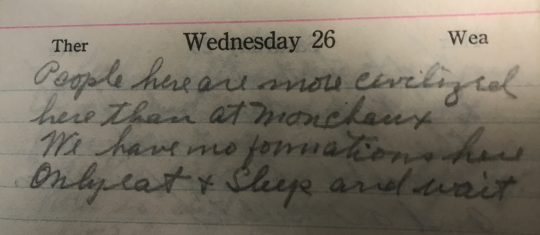 Ther Wednesday 26 Wea
People here are more civilized
here than at Monchaux
We have no formations here
Only eat + Sleep and wait